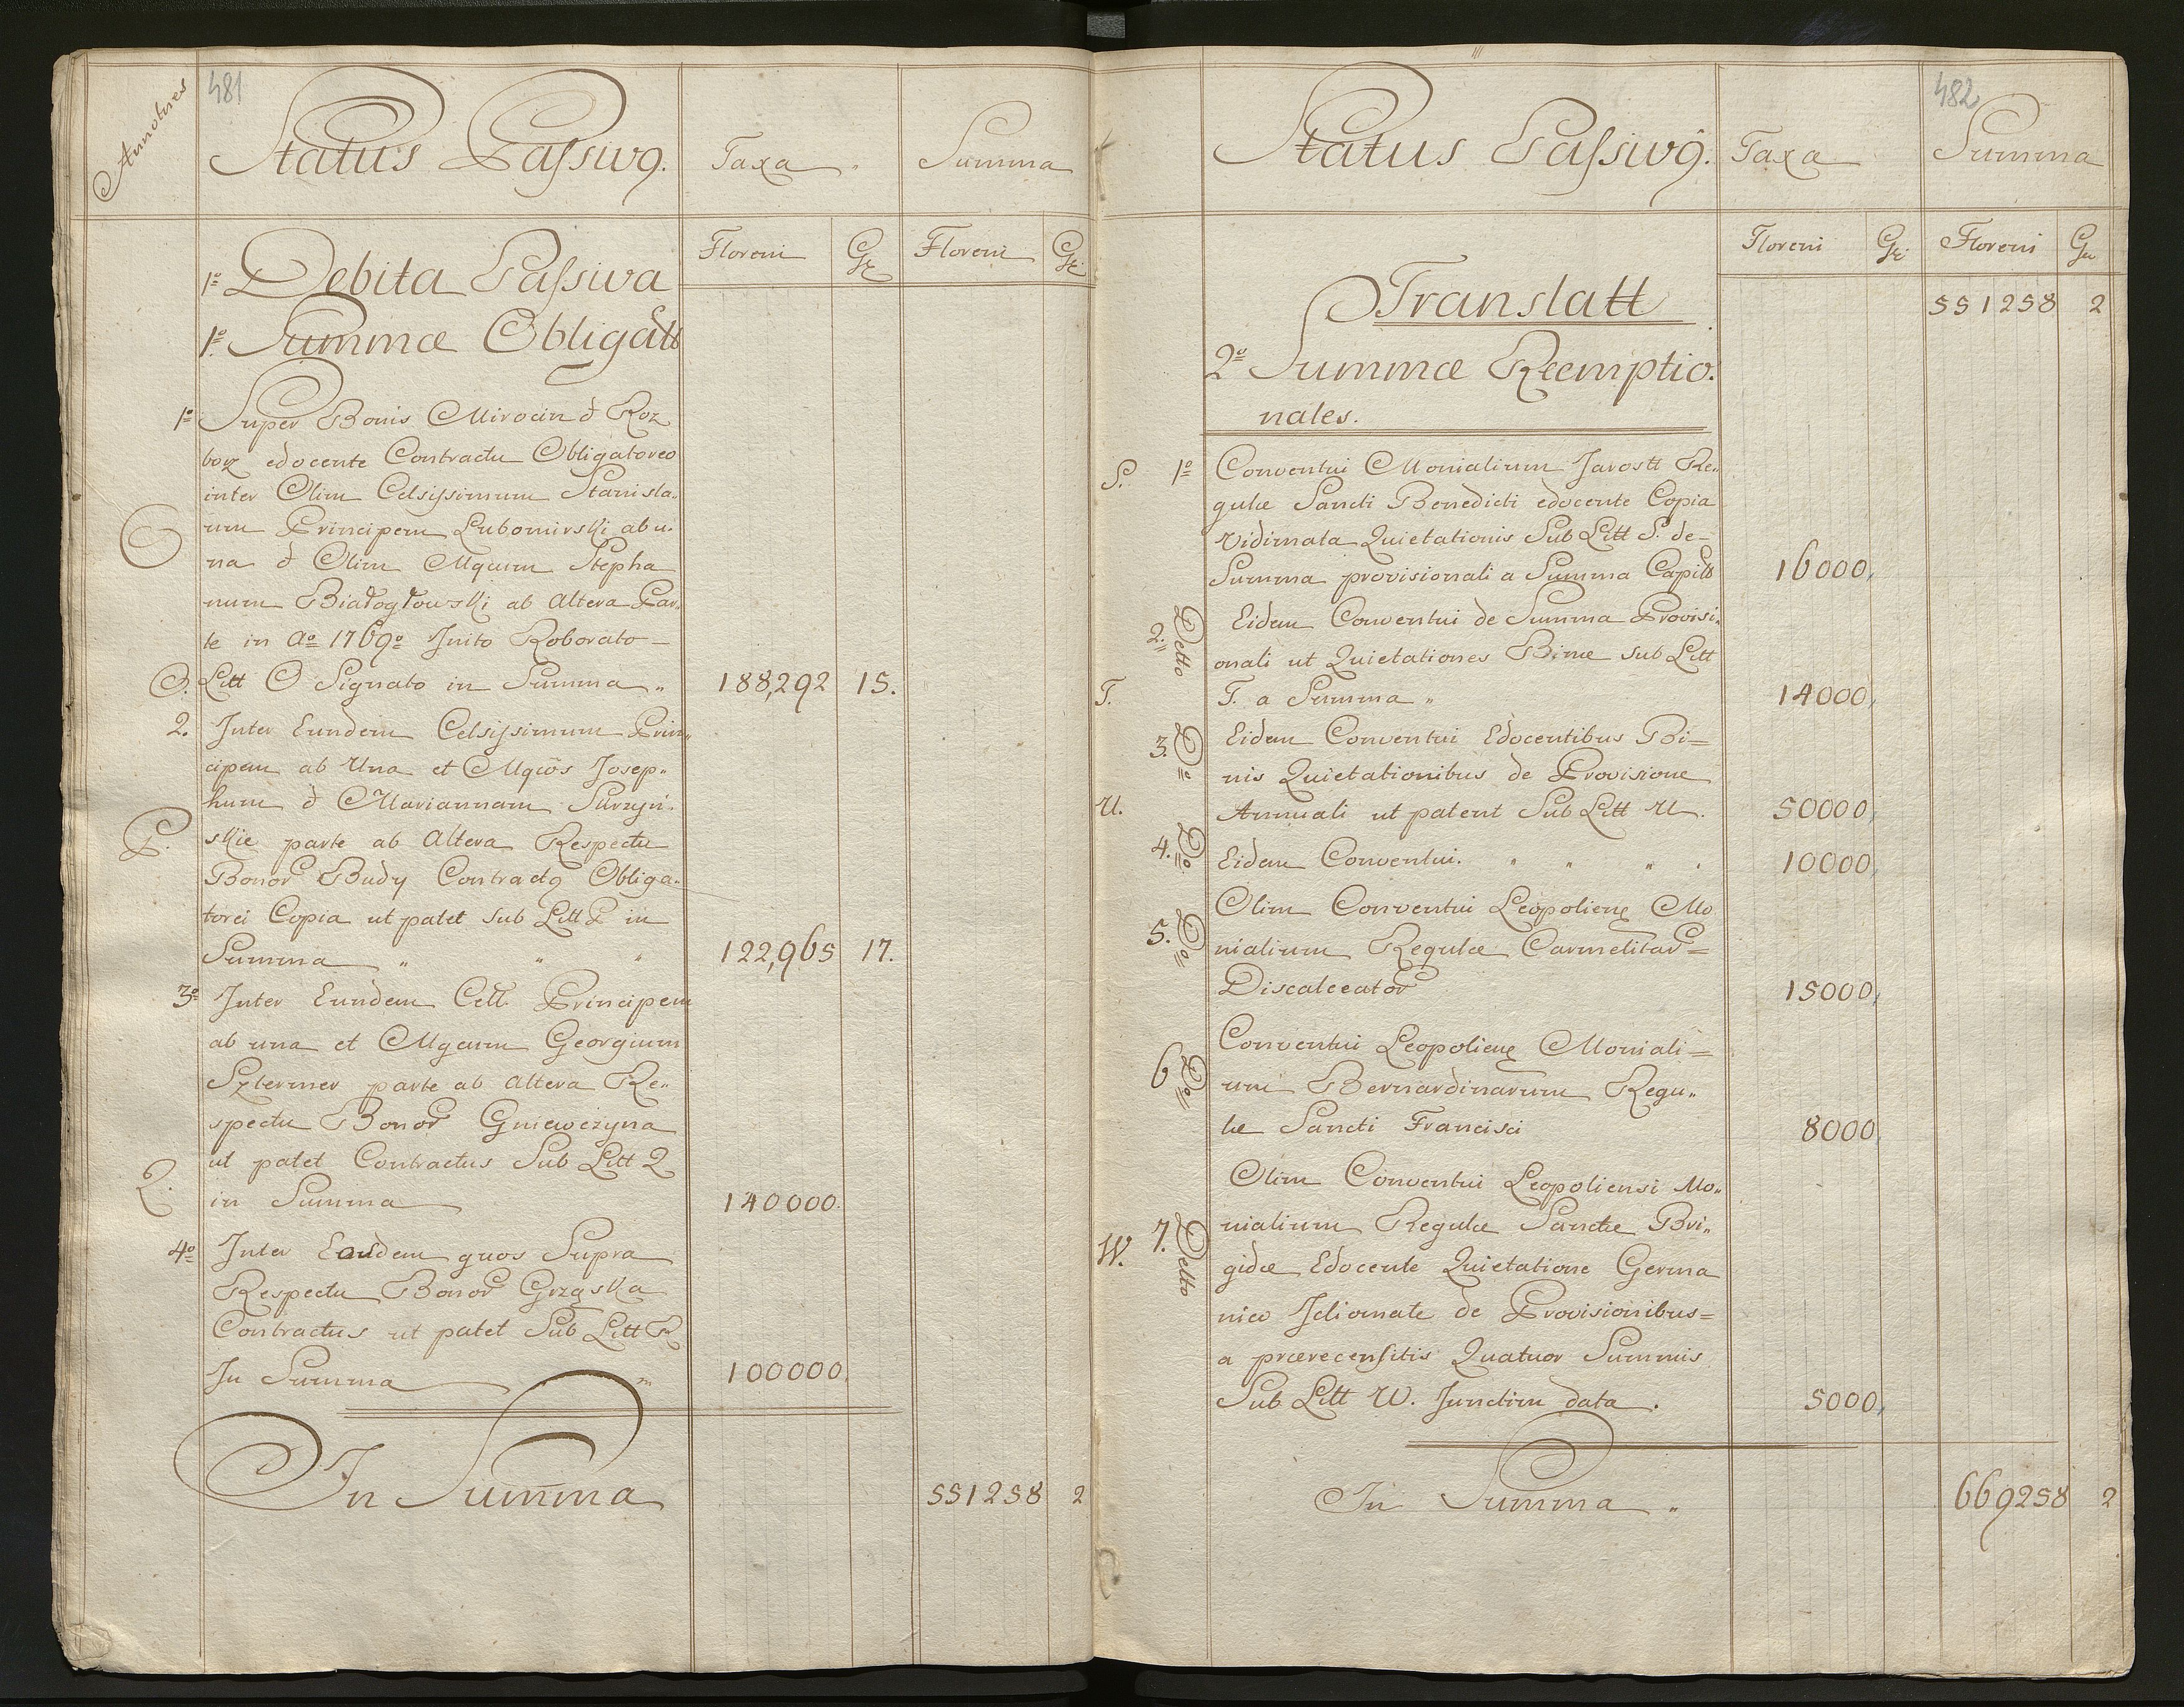 Annotnes
481
Status Passivg.
Taxa
Summa
Floreni Gr Floreni Gr
1º Debita Passiva
1º Summæ Obligatt
1º Super Bonis Mirocin & Roz
borz edocente Contractu Obligatoreo
inter Olim Celsissimum Stanisla„
um Principem Lubomirski ab u„
O
na & Olim Mgcum Stepha
num Białogłowski ab altera Par„
te in Aº 1769º Inito Roborato
O. Litt O Signato in Summa „ 188,292 15.
2. Inter Eundem Celsissimum Prin„
cipem ab Una et Mgcos Josep„
hum & Mariannam Surzyń„
P. skie parte ab Altera Respectu
Bonor Budy Contractg Obliga„
torei Copia ut patet sub Litt P in
Summa „ „ „ 122,965 17.
3º Inter Eundem Cell. Principem
ab una et Mgcum Georgium
Sztermer parte ab altera Re„
spectu Bonor Gniewczyna
ut patet Contractus Sub Litt Q
Q. in Summa 140000.
4º Inter Eosdem quos Supra
Respectu Bonor Grzęska
Contractus ut patet Sub Litt R
In Summa „ 100000.
In Summa 551258 2
482
Status Passivg.
Taxa
Summa
Floreni Gr Floreni Gr
Translatt 551258 2
2º Summæ Reemptio.
nales.
S. 1º Conventui Monialium Jarostt Re„
gulæ Sancti Benedicti edocente Copia
Vidimata Quietationis Sub Litt S. de
Summa provisionali a Summa Capitt 16000,
2. Detto Eidem Conventui de Summa Provisi„
onali ut Quietationes Binæ sub Litt
T. T. a Summa „ 14000,
3. Dº Eidem Conventui Edocentibus Bi=
nis Quietationibus de Provisione
U. Annuali ut patent Sub Litt U. 50000,
4. Dº Eidem Conventui. „ „ „ . 10000,
5. Dº Olim Conventui Leopolieng Mo
nialium Regulæ Carmelitar=
Discalceator 15000,
6 Dº Conventui Leopolieng Moniali=
um Bernardinarum Regu„
læ Sancti Francisci 8000,
Olim Conventui Leopoliensi Mo„
W. 7. Detto nialium Regulæ Sanctæ Bri„
gidæ Edocente Quietatione Germa
nico Idiomate de Provisionibus=
a prærecensitis Quatuor Summis
Sub Litt W. Junctim data. 5000,
In Summa „ 669258 2